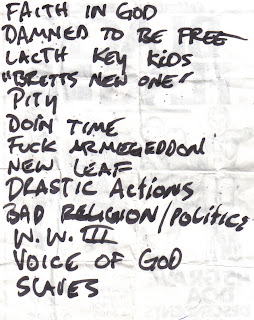 FAITH IN GOD
DAMNED TO BE FREE
LACTH KEY KIDS
"BRETTS NEW ONE"
PITY
DOIN TIME
FUCK ARMEGEDDON
NEW LEAF
DRASTIC ACTIONS
BAD RELIGION/POLITICS
W.W. III
VOICE OF GOD
SLAVES
DESCENDENTS